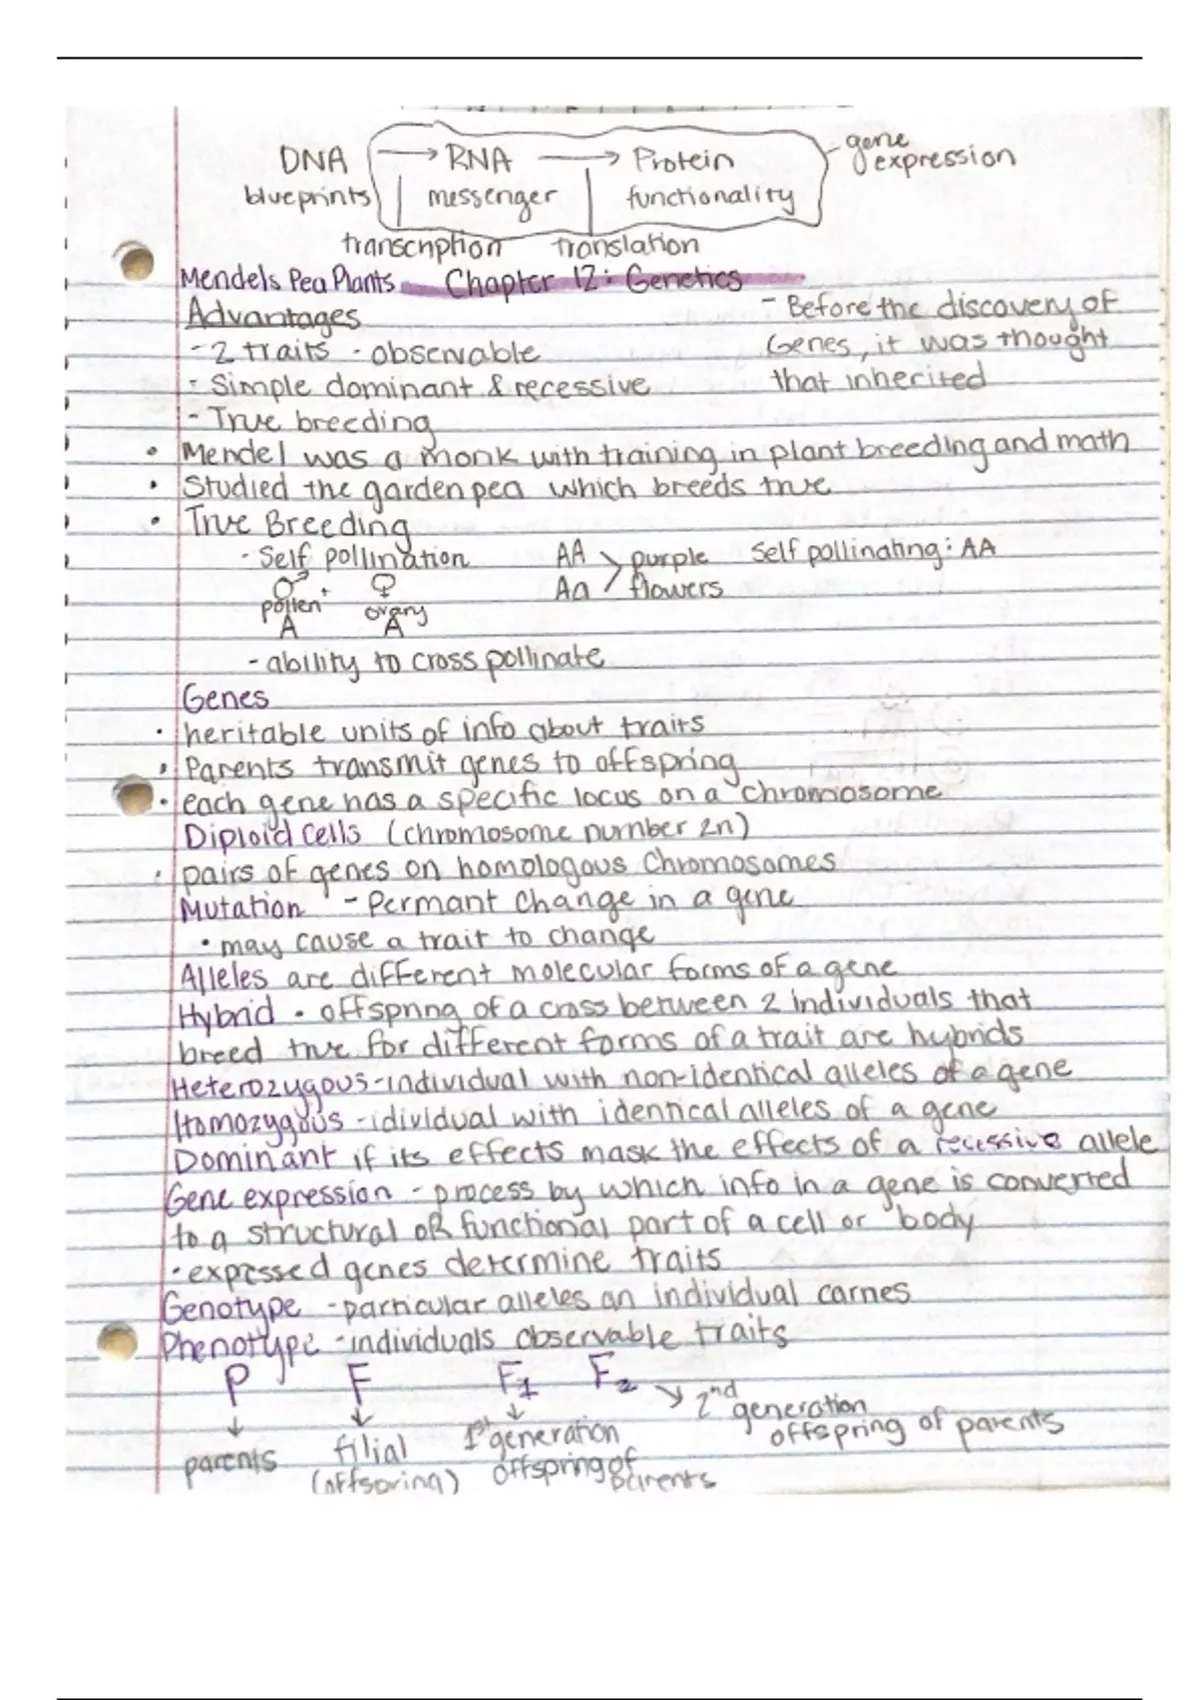 DNA → RNA → Protein - gene expression
blueprints messenger functionality
transcription translation
Mendels Pea Plants Chapter 12: Genetics
Advantages
- 2 traits · observable
- Simple dominant & recessive
- True breeding
- Before the discovery of
Genes, it was thought
that inherited
• Mendel was a monk with training in plant breeding and math
• Studied the garden pea which breeds true
• True Breeding
- Self pollination AA purple Self pollinating: AA
♂ + ♀ Aa flowers
pollen ovary
A A
- ability to cross pollinate
Genes
• heritable units of info about traits
• Parents transmit genes to offspring
• each gene has a specific locus on a chromosome
Diploid Cells (chromosome number 2n)
• pairs of genes on homologous Chromosomes
Mutation - Permant Change in a gene
• may cause a trait to change
Alleles are different molecular forms of a gene
Hybrid • offspring of a cross between 2 individuals that
breed true for different forms of a trait are hybrids
Heterozygous - individual with non-identical alleles of a gene
Homozygous - idividual with identical alleles of a gene
Dominant if its effects mask the effects of a recessive allele
Gene expression - process by which info in a gene is converted
to a structural OR functional part of a cell or body
• expressed genes determine traits
Genotype - particular alleles an individual carries
Phenotype - individuals observable traits
P F F1 F2
↓ parents
↓ filial
(offspring)
↓ 1st generation
offspring of
parents
↘ 2nd generation
offspring of parents